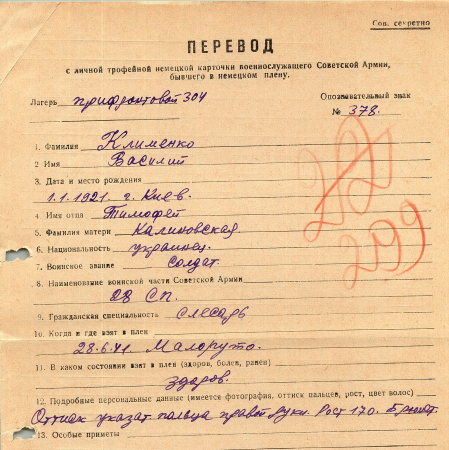 Сов. секретно
ПЕРЕВОД
с личной трофейной немецкой карточки военнослужащего Советской Армии,
бывшего в немецком плену.
Лагерь прифронтовой 304
Опознавательный знак
№ 378.
1. Фамилия Клименко
2 Имя Василий
3. Дата и место рождения
1.1.1921. г. Киев.
4. Имя отца Тимофей
5. Фамилия матери Калиновская
6. Национальность украинец.
7. Воинское звание солдат.
8. Наименование воинской части Советской Армии
СП.
9. Гражданская специальность слесарь
10. Когда и где взят в плен
28.6.41. Малорута.
11. В каком состоянии взят в плен (здоров, болен, ранен)
здоров.
12. Подробные персональные данные (имеется фотография, оттиск пальцев, рост, цвет волос)
Оттиск указат. пальца правой руки. Рост 170.
13. Особые приметы
299